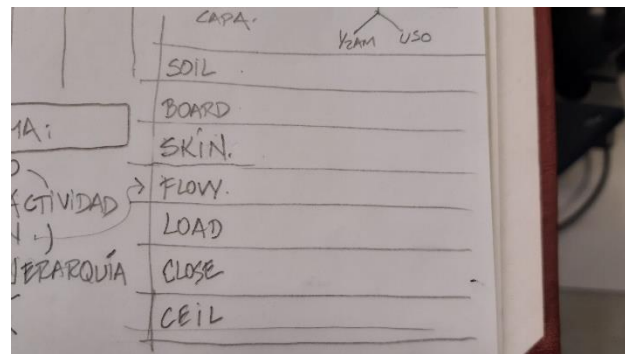 CAPA.
½AM USO
SOIL
BOARD
SKIN.
FLOW.
LOAD
CLOSE
CEIL
MA:
ACTIVIDAD
JERARQUÍA